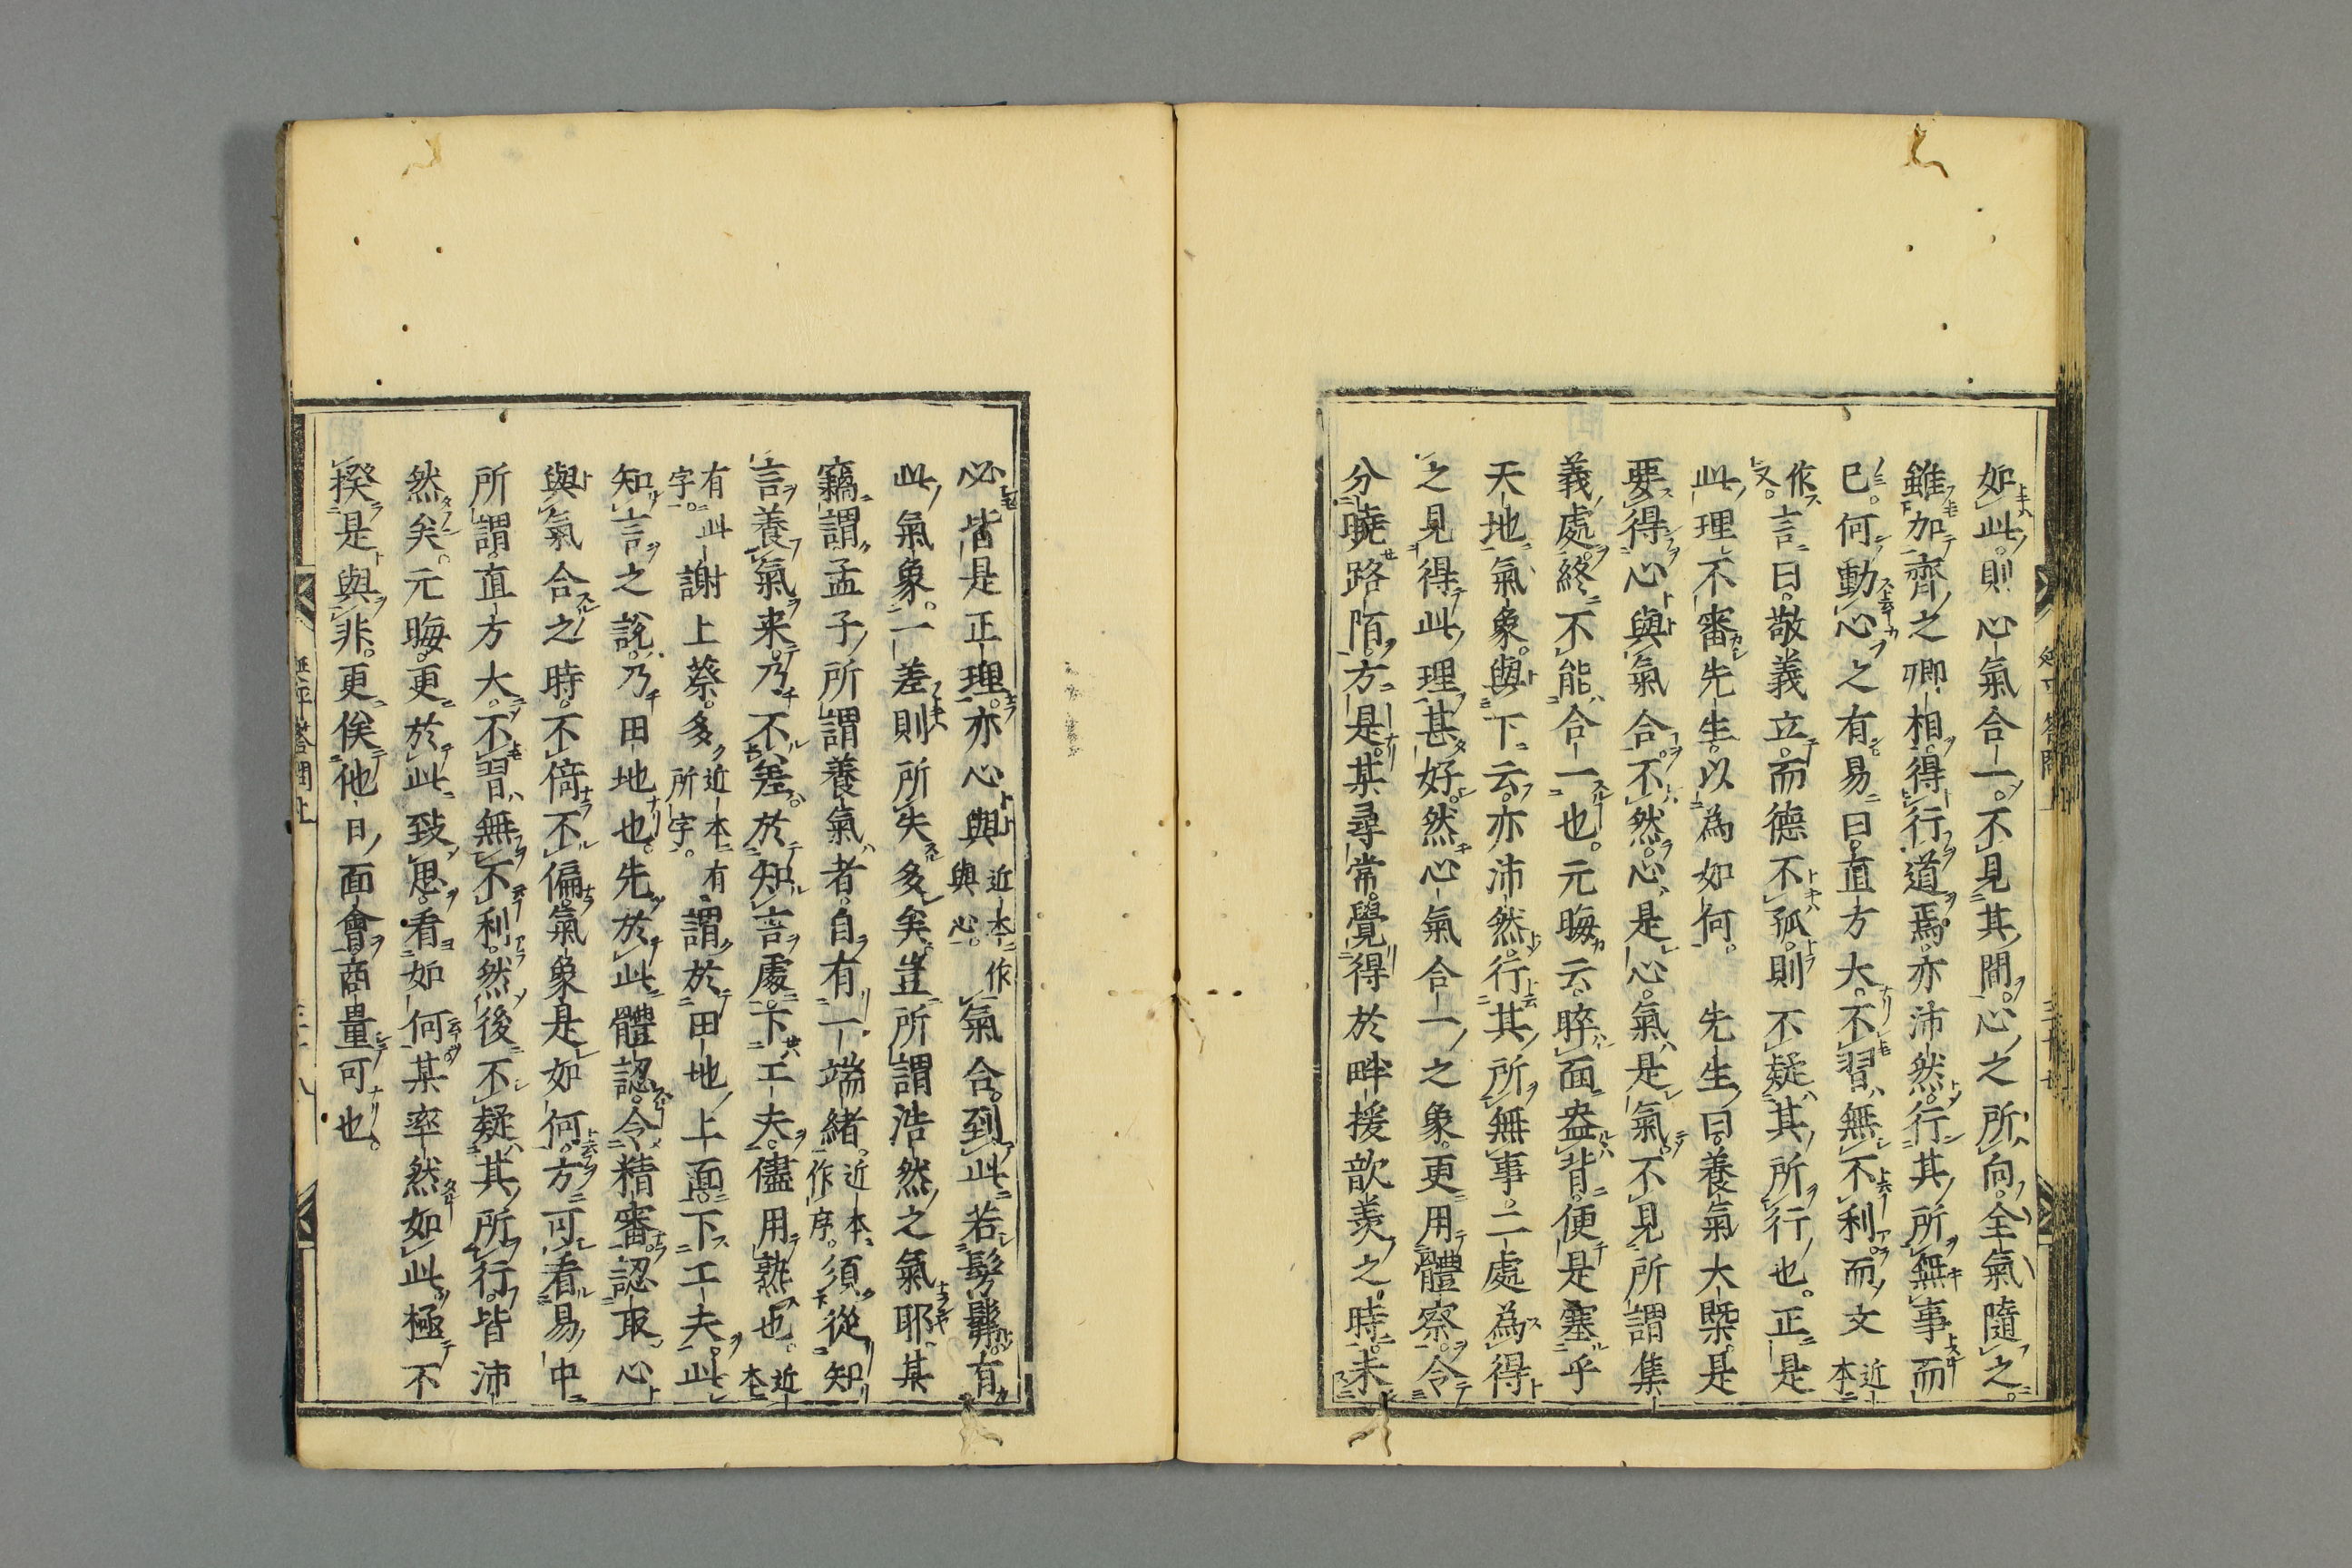 如此。則心氣合一。不見其間。心之所向。全氣隨之。
雖加齊之卿相。得行道焉。亦沛然。行其所無事而
已。何動心之有。易曰。直方大。不習無不利而文近本
作又。言曰。敬義立而德不孤。則不疑其所行也。正是
此理不審先生。以為如何。先生曰。養氣大槩是
要得心與氣合。不然心是心。氣是氣。不見所謂集
義處。終不能合一也。元晦云。睟面盎背。便是塞乎
天地氣象。與下云。亦沛然。行其所無事。二處為得
之見得此理甚好。然心氣合一之象。更用體察。令
分曉路陌。方是。某尋常覺得於畔援歆羨之時。未
必皆是正理。亦心與近本作與心。氣合。到此若髣髴有
此氣象。一差則所失多矣。豈所謂浩然之氣耶。某
竊謂孟子所謂養氣者。自有一端緒。近本作序。須從知
言養氣來。乃不差。於知言處。下工夫。儘用熟也。近本
有此字。謝上蔡。多近本有所字。謂於田地上面。下工夫。此
知言之說。乃田地也。先於此體認。令精審。認取心
與氣合之時。不倚不偏。氣象是如何。方可看易中
所謂直方大。不習無不利。然後不疑其所行。皆沛
然矣。元晦。更於此致思。看如何。某率然如此。極不
揆是與非。更俟他日面會商量可也。
延平答問上